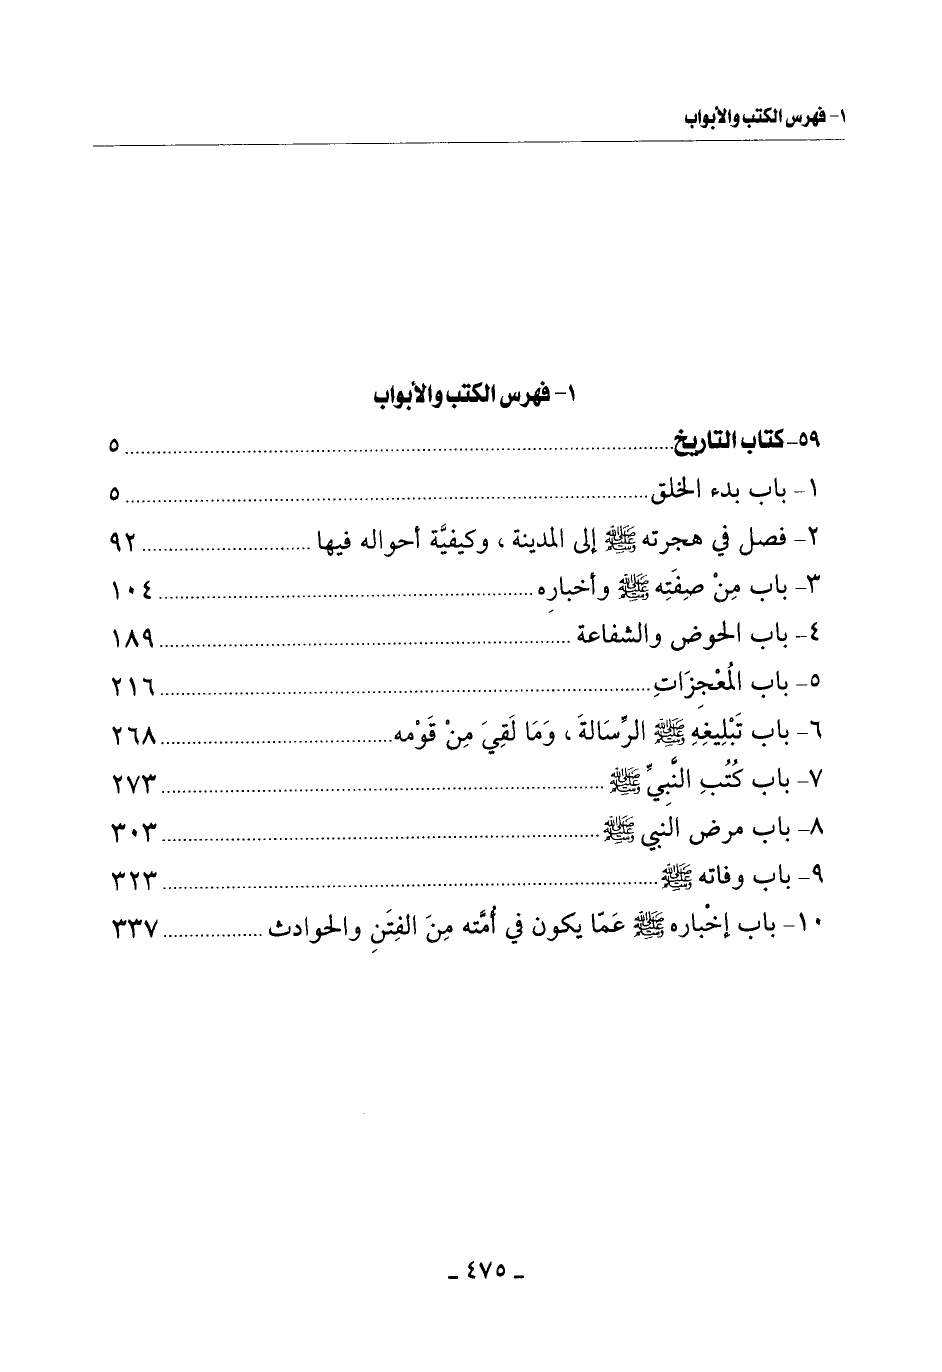 ١- فهرس الكتب والأبواب
١- فهرس الكتب والأبواب
٥٩- كتاب التاريخ ........ ٥
١- باب بدء الخلق ........ ٥
٢- فصل في هجرته ﷺ إلى المدينة ، وكيفيَّة أحواله فيها ........ ٩٢
٣- باب مِنْ صِفَتِه ﷺ وأخبارِه ........ ١٠٤
٤- باب الحوض والشفاعة ........ ١٨٩
٥- باب المُعْجِزَاتِ ........ ٢١٦
٦- باب تَبْلِيغِهِ ﷺ الرِّسَالةَ ، وَمَا لَقِيَ مِنْ قَوْمه ........ ٢٦٨
٧- باب كُتُبِ النَّبِيِّ ﷺ ........ ٢٧٣
٨- باب مرض النبي ﷺ ........ ٣٠٣
٩- باب وفاته ﷺ ........ ٣٢٣
١٠- باب إخْباره ﷺ عَمّا يكون في أُمَّته مِنَ الفِتَنِ والحوادث ........ ٣٣٧
ـ ٤٧٥ ـ